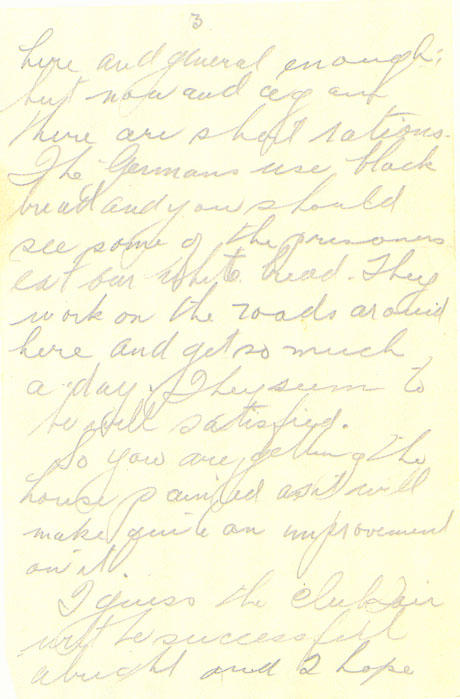 3
here and general enough;
but now and again
there are short rations.
The Germans use black
bread and you should
see some of the prisoners
eat our white bread. They
work on the roads around
here and get so much
a day. They seem to
be well satisfied.
So you are getting the
house painted as it will
make quite an improvement
on it
I guess the club fair
will be successful
alright and I hope